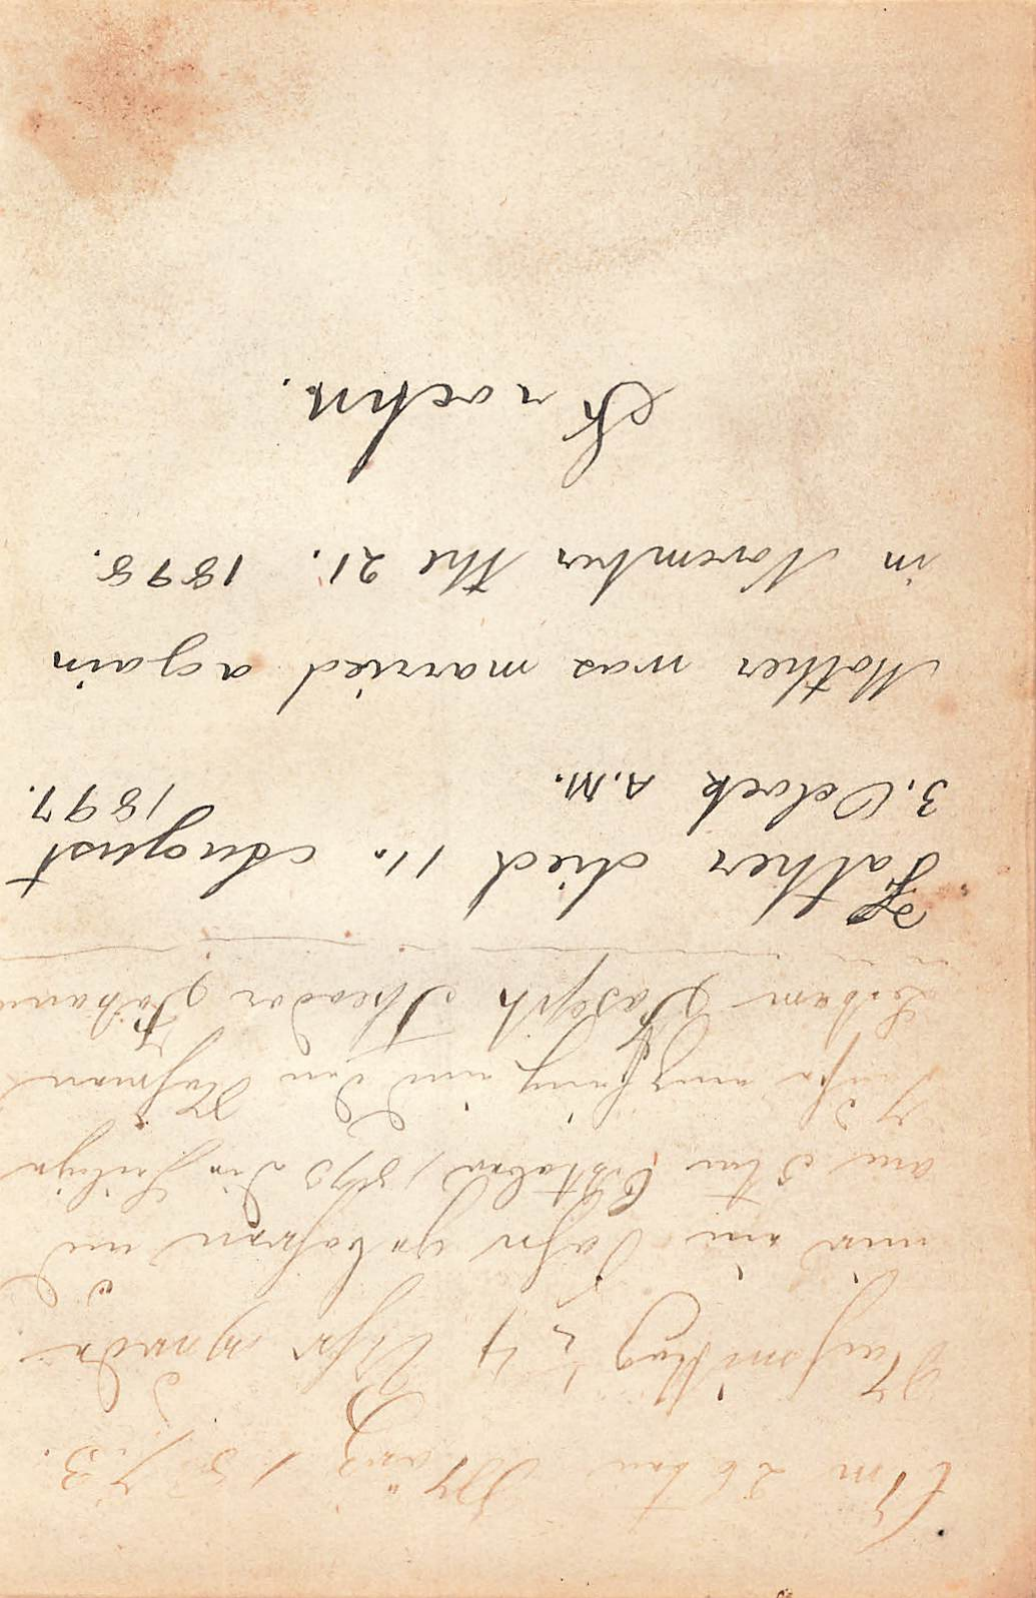 Am 26 ten März 1873.
Nachmittag ½ 4 Uhr wurde
mir ein Sohn geboren und
am 5 ten Oktober 1873 die heilige
Taufe empfing und den Nahmen
bekam Joseph Theador Johann
Father died 11. August
1897.
3. Oclock A.M.
Mother was married again
in November the 21. 1898.